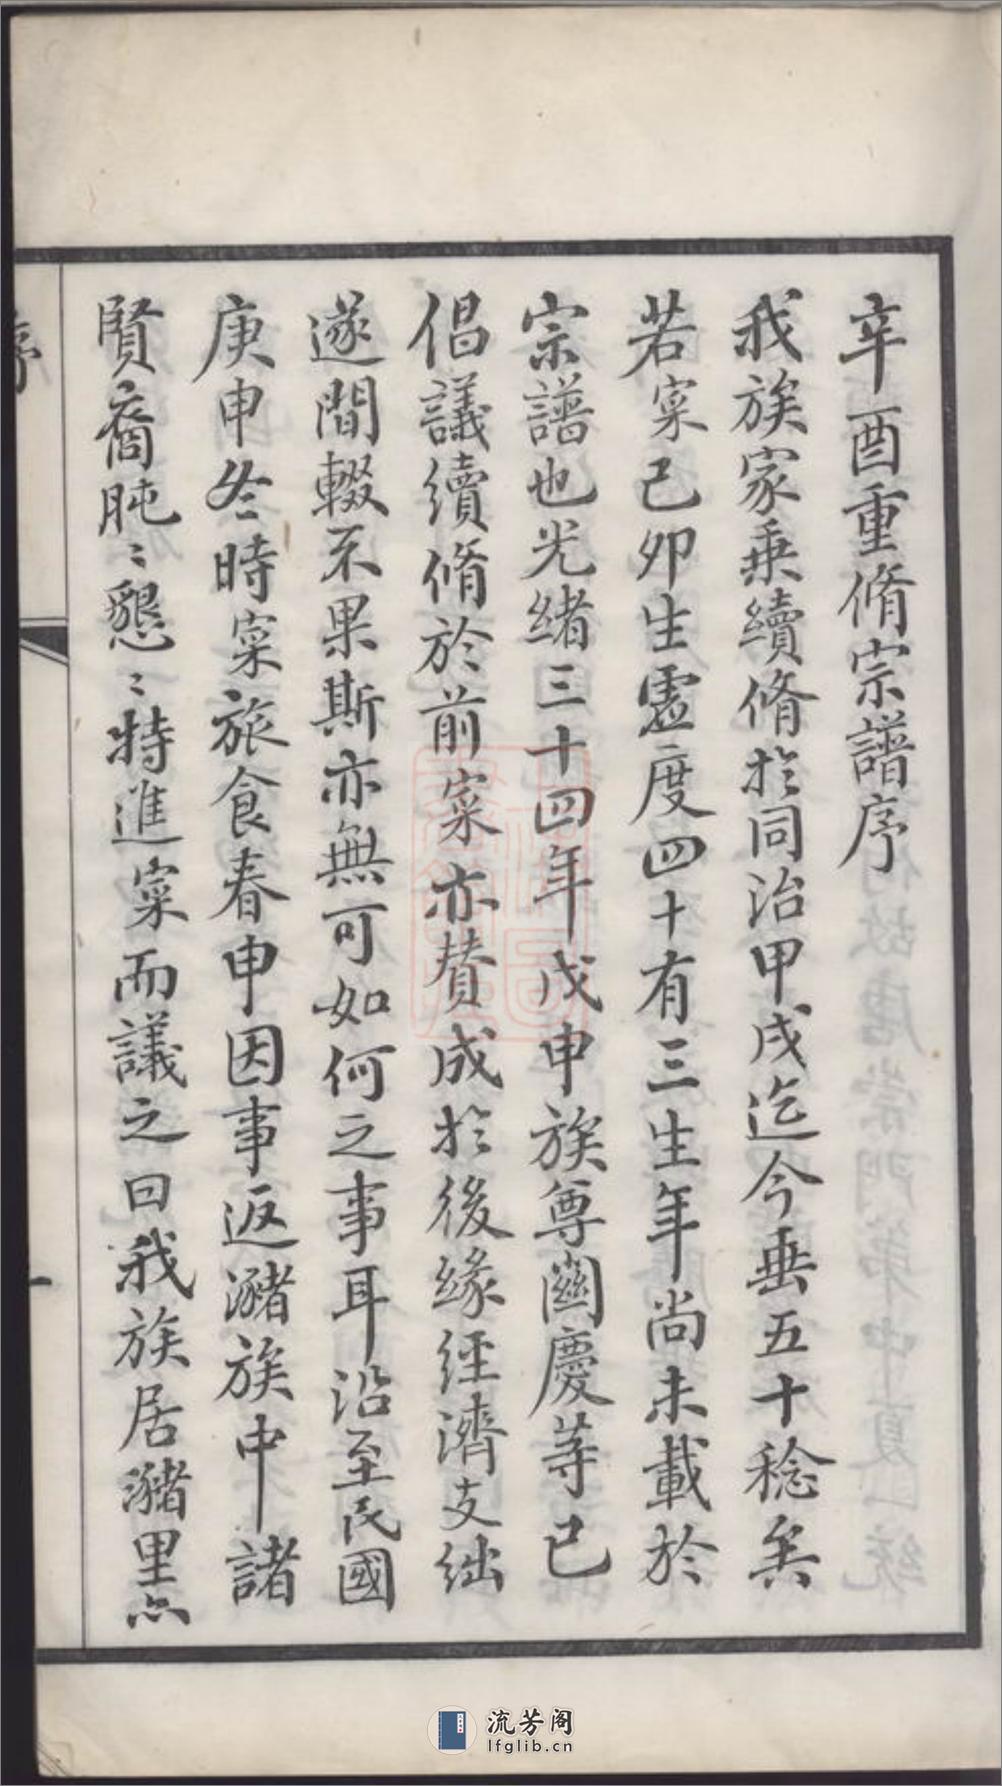 辛酉重脩宗譜序
我族家乗續脩於同治甲戌迄今垂五十稔矣
若寀己卯生虛度四十有三生年尚未載於
宗譜也光緒三十四年戊申族尊闓慶等已
倡議續脩於前寀亦賛成於後緣經濟支絀
遂間輟不果斯亦無可如何之事耳沿至民國
庚申冬時寀旅食春申因事返瀦族中諸
賢裔肫〻懇〻特進寀而議之曰我族居瀦里
序
一
流芳阁
lfglib.cn